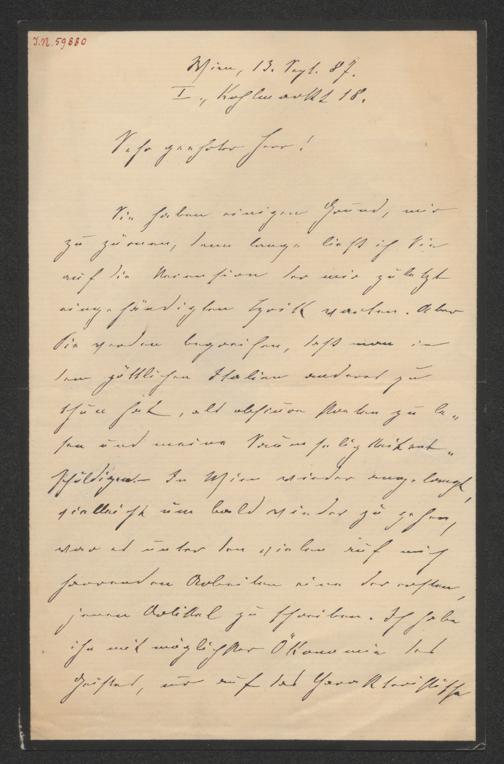 I.N. 59880
Wien, 13. Sept. 87.
I., Kohlmarkt 18.
Sehr geehrter Herr!
Sie haben einigen Grund, mir
zu zürnen, denn lange ließ ich Sie
auf die Recension der mir zuletzt
eingehändigten Lyrik warten. Aber
Sie werden begreifen, daß man in
dem göttlichen Italien anderes zu
thun hat, als obscure Poeten zu le„
sen und meine Saumseligkeit ent„
schuldigen. In Wien wieder angelangt,
vielleicht um bald wieder zu gehen,
war es unter den vielen auf mich
harrenden Arbeiten eine der ersten,
jenen Artikel zu schreiben. Ich habe
ihn mit möglichster Ökonomie des
Geistes, nur auf das Charakteristische